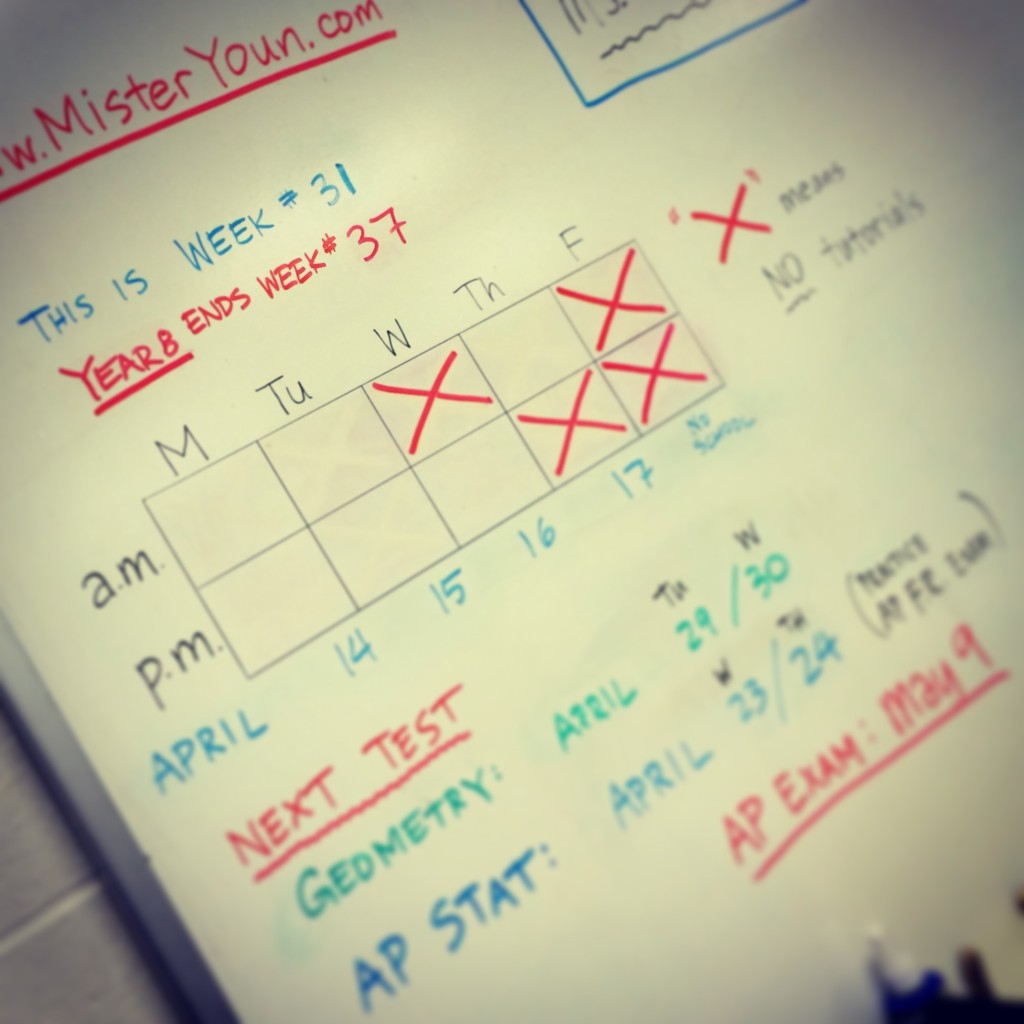 w.MisterYoun.com
THIS IS WEEK # 31
YEAR ENDS WEEK # 37
M Tu W Th F
"X" means
NO tutorials
a.m.
p.m.
APRIL 14 15 16 17 NO SCHOOL
NEXT TEST
Tu W
GEOMETRY: APRIL 29/30
W TH
AP STAT: APRIL 23/24 (PRACTICE AP F.R. EXAM)
AP EXAM: MAY 9